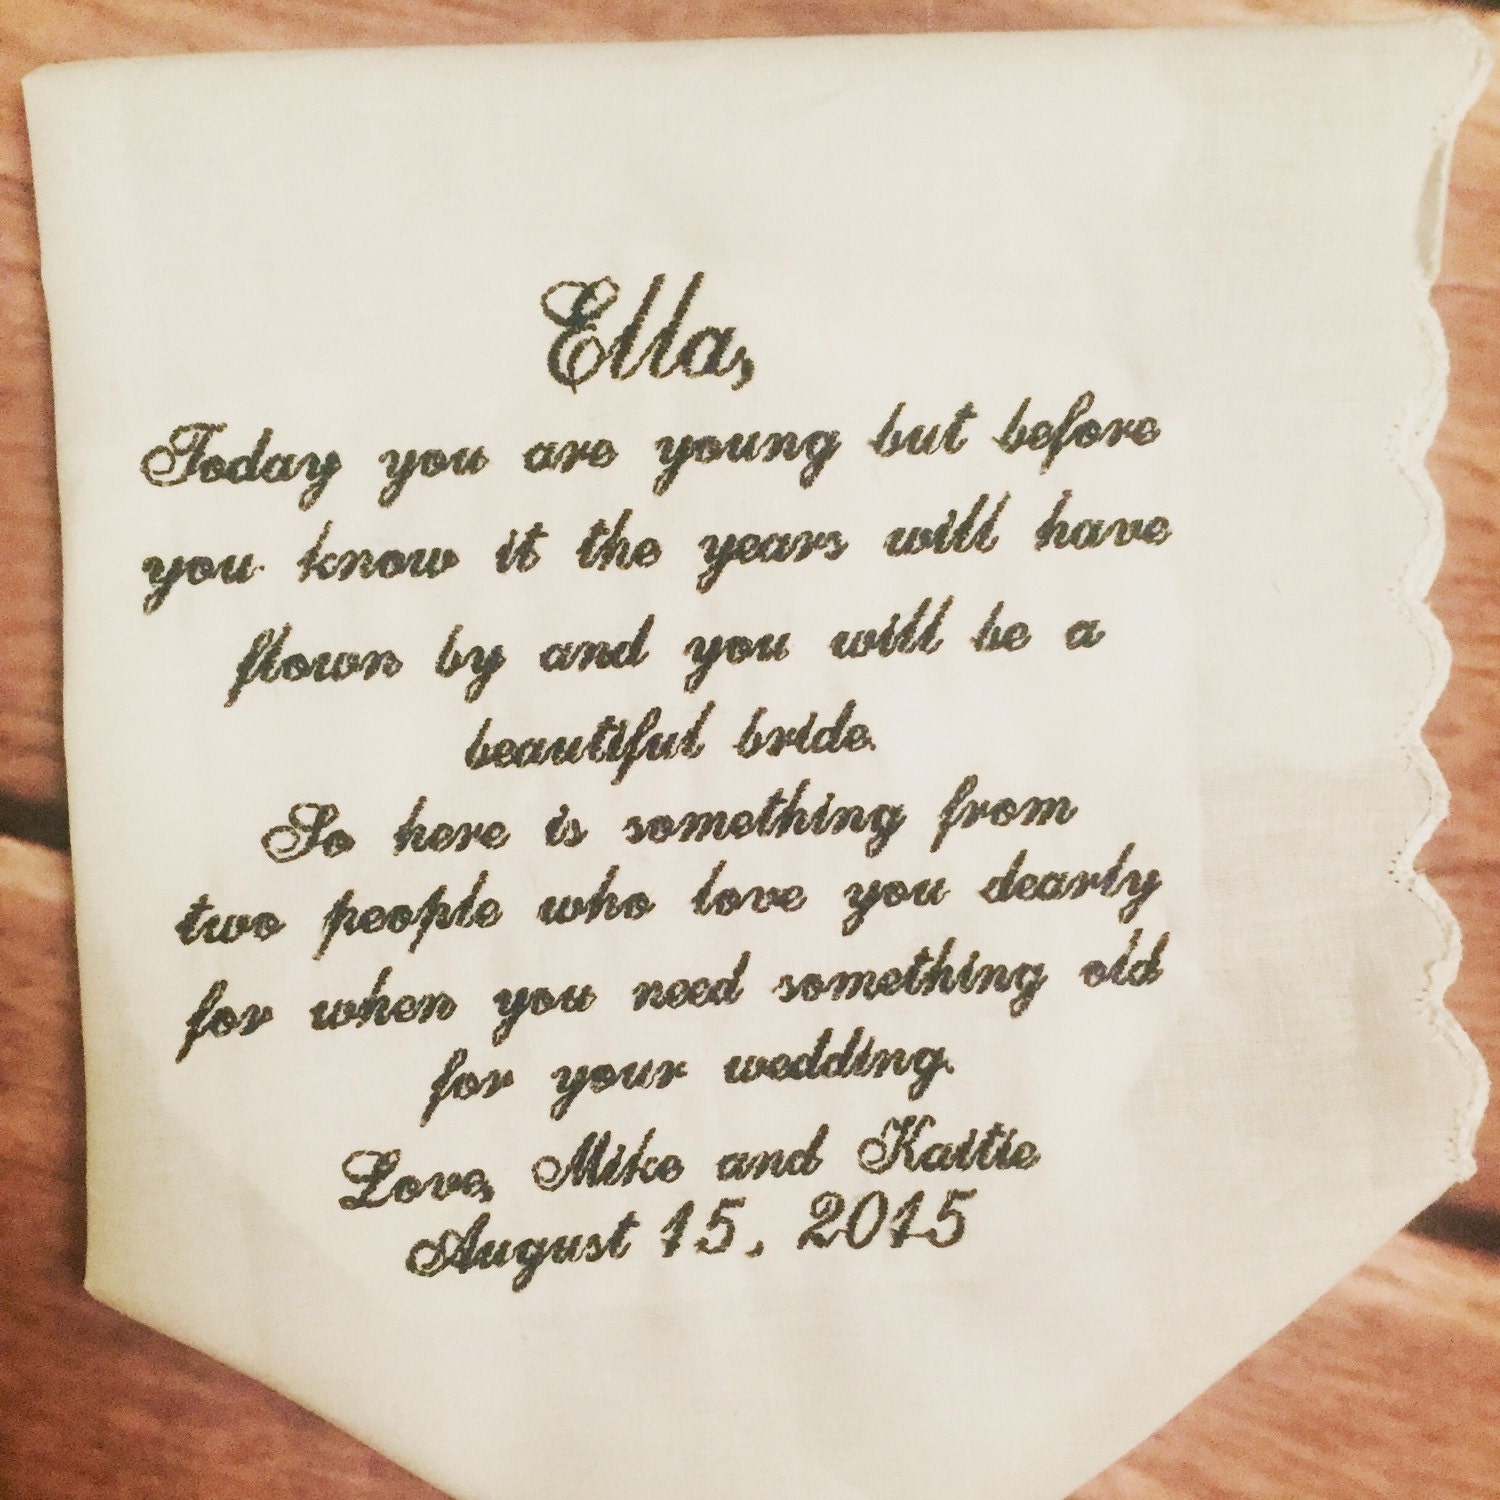 Ella,
Today you are young but before
you know it the years will have
flown by and you will be a
beautiful bride.
So here is something from
two people who love you dearly
for when you need something old
for your wedding.
Love, Mike and Kaitie
August 15, 2015